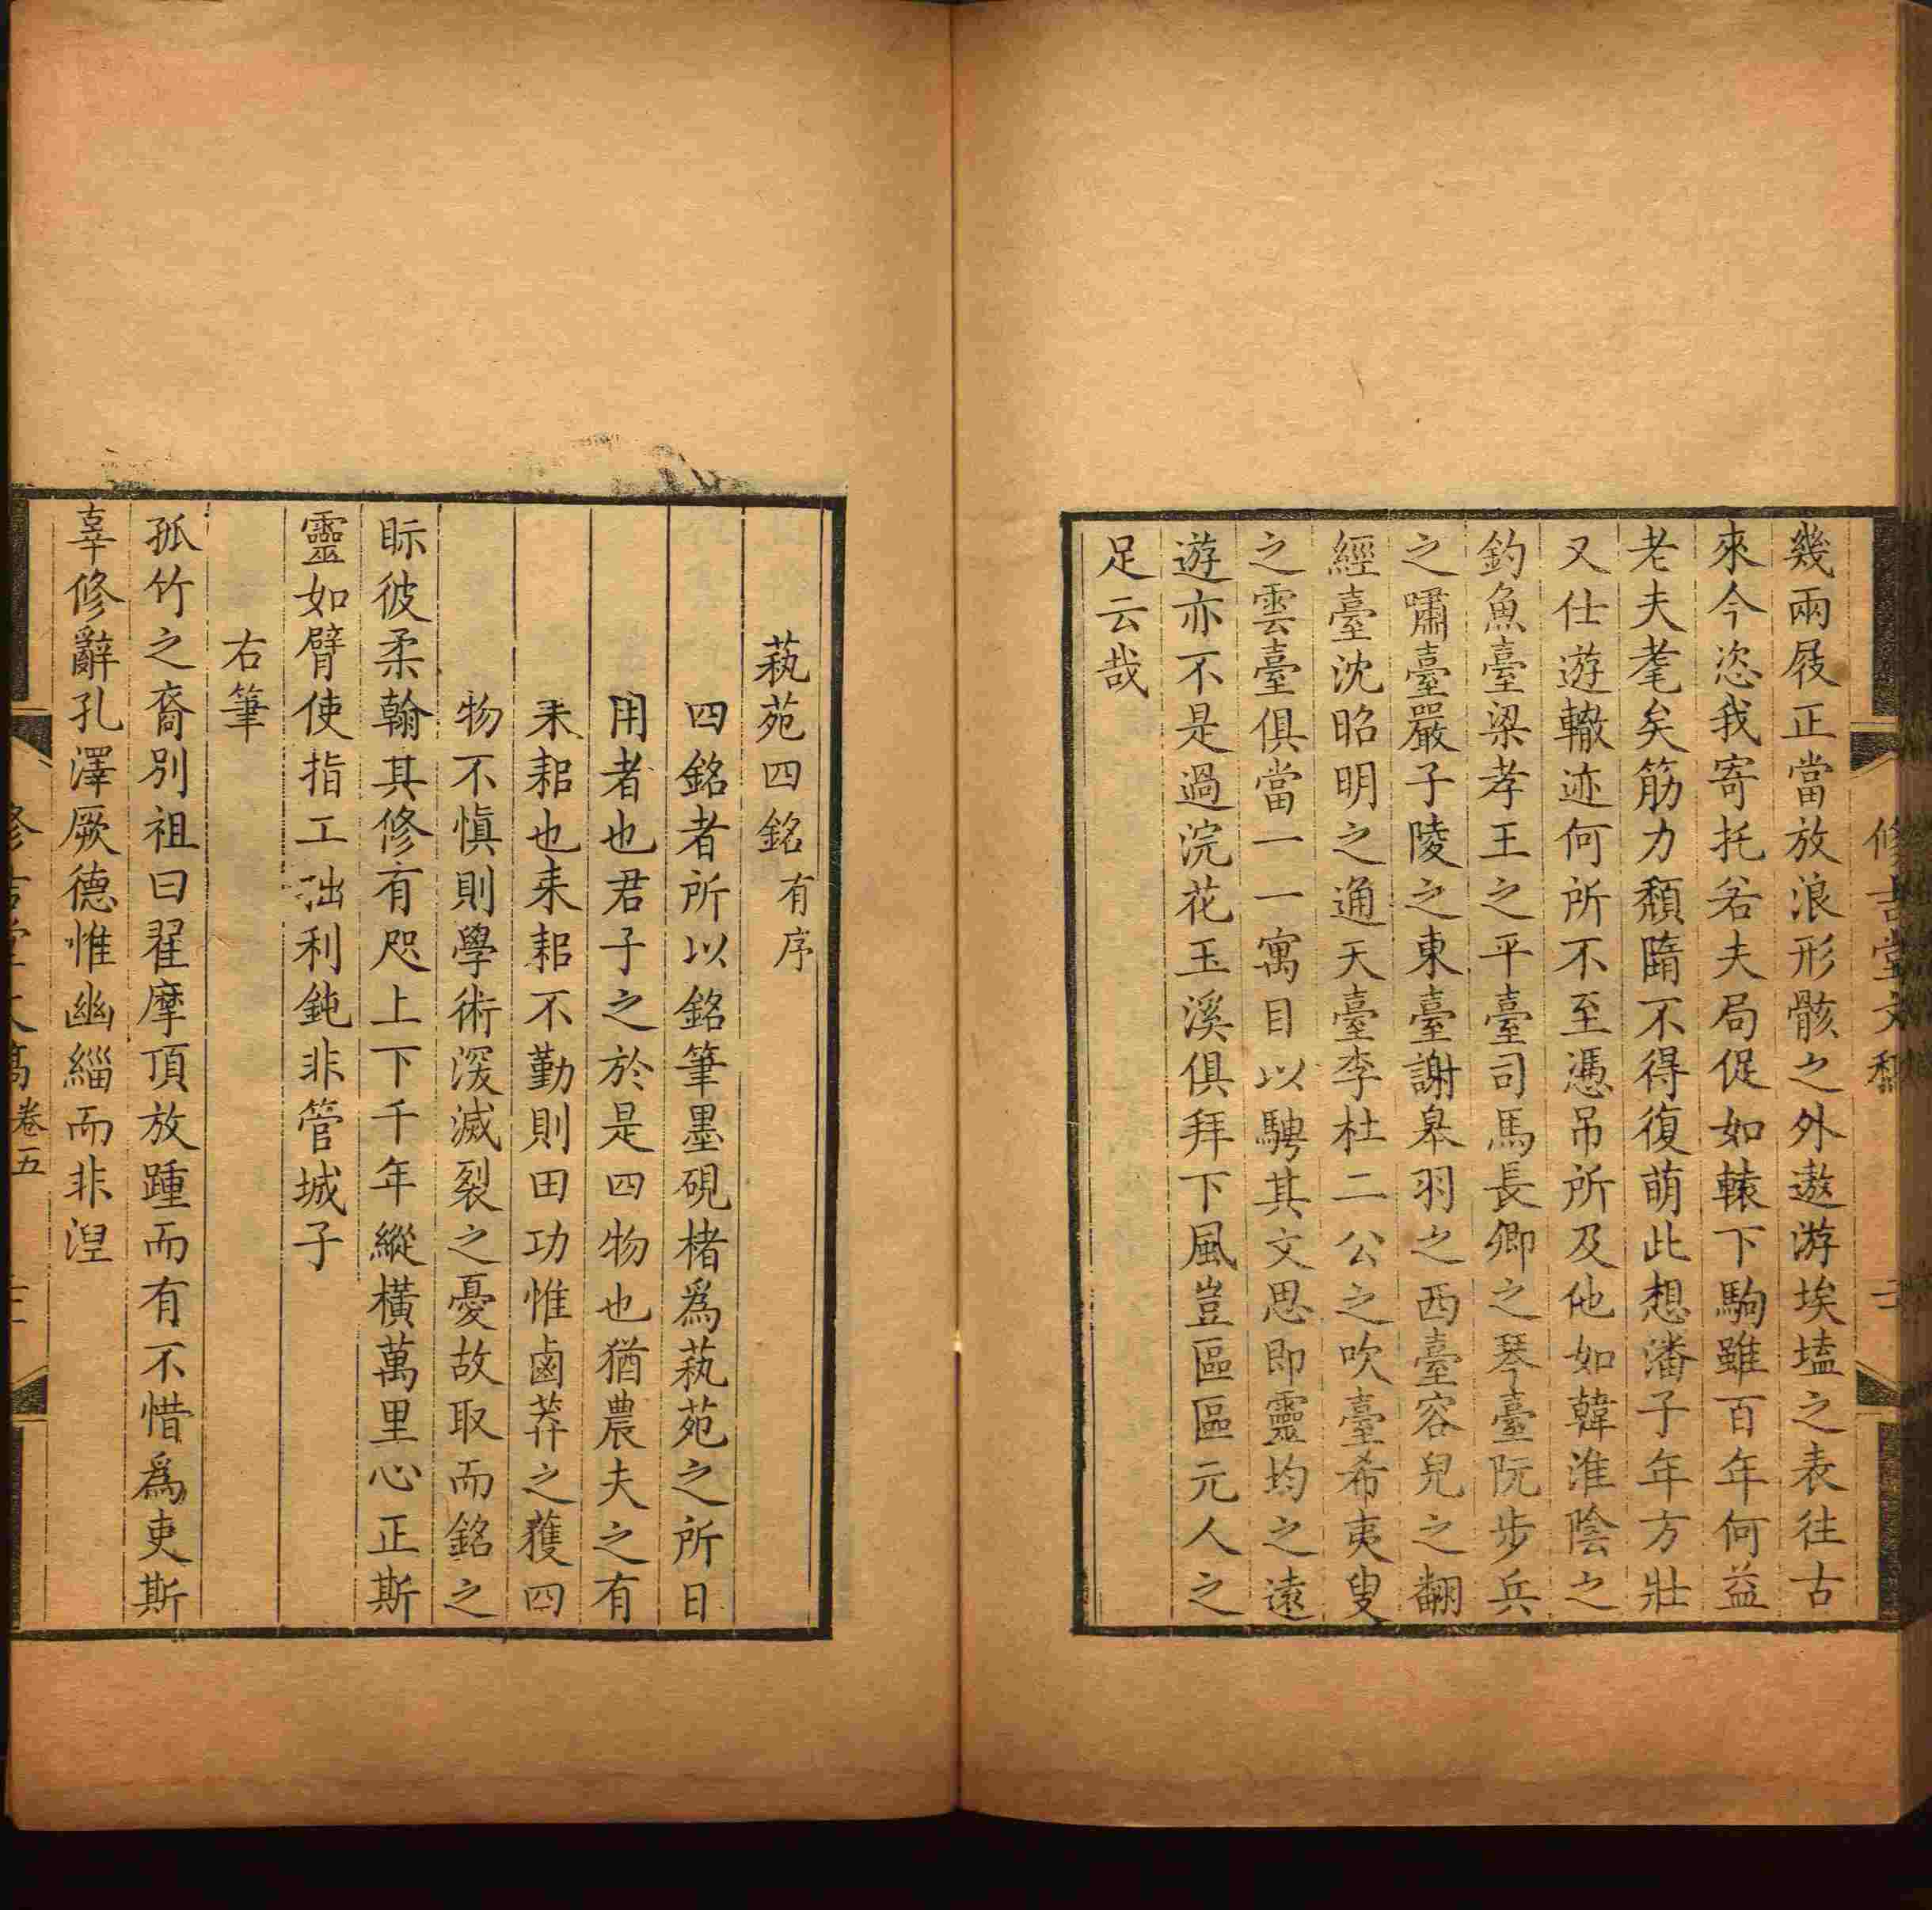 幾兩屐正當放浪形骸之外遨游埃壒之表往古
來今恣我寄托若夫局促如轅下駒雖百年何益
老夫耄矣筋力頹隋不得復萌此想潘子年方壯
又仕遊轍迹何所不至憑吊所及他如韓淮陰之
釣魚臺梁孝王之平臺司馬長卿之琴臺阮步兵
之嘯臺嚴子陵之東臺謝皋羽之西臺容兒之翻
經臺沈昭明之通天臺李杜二公之吹臺希夷叟
之雲臺俱當一一寓目以騁其文思即靈均之遠
遊亦不是過浣花玉溪俱拜下風豈區區元人之
足云哉
蓺苑四銘有序
四銘者所以銘筆墨硯楮爲蓺苑之所日
用者也君子之於是四物也猶農夫之有
耒耜也耒耜不勤則田功惟鹵莽之獲四
物不愼則學術㴱滅裂之憂故取而銘之
眎彼柔翰其修有咫上下千年縱橫萬里心正斯
靈如臂使指工拙利鈍非管城子
右筆
孤竹之裔別祖曰翟摩頂放踵而有不惜爲吏斯
辜修辭孔澤厥德惟幽緇而非湼
卷五